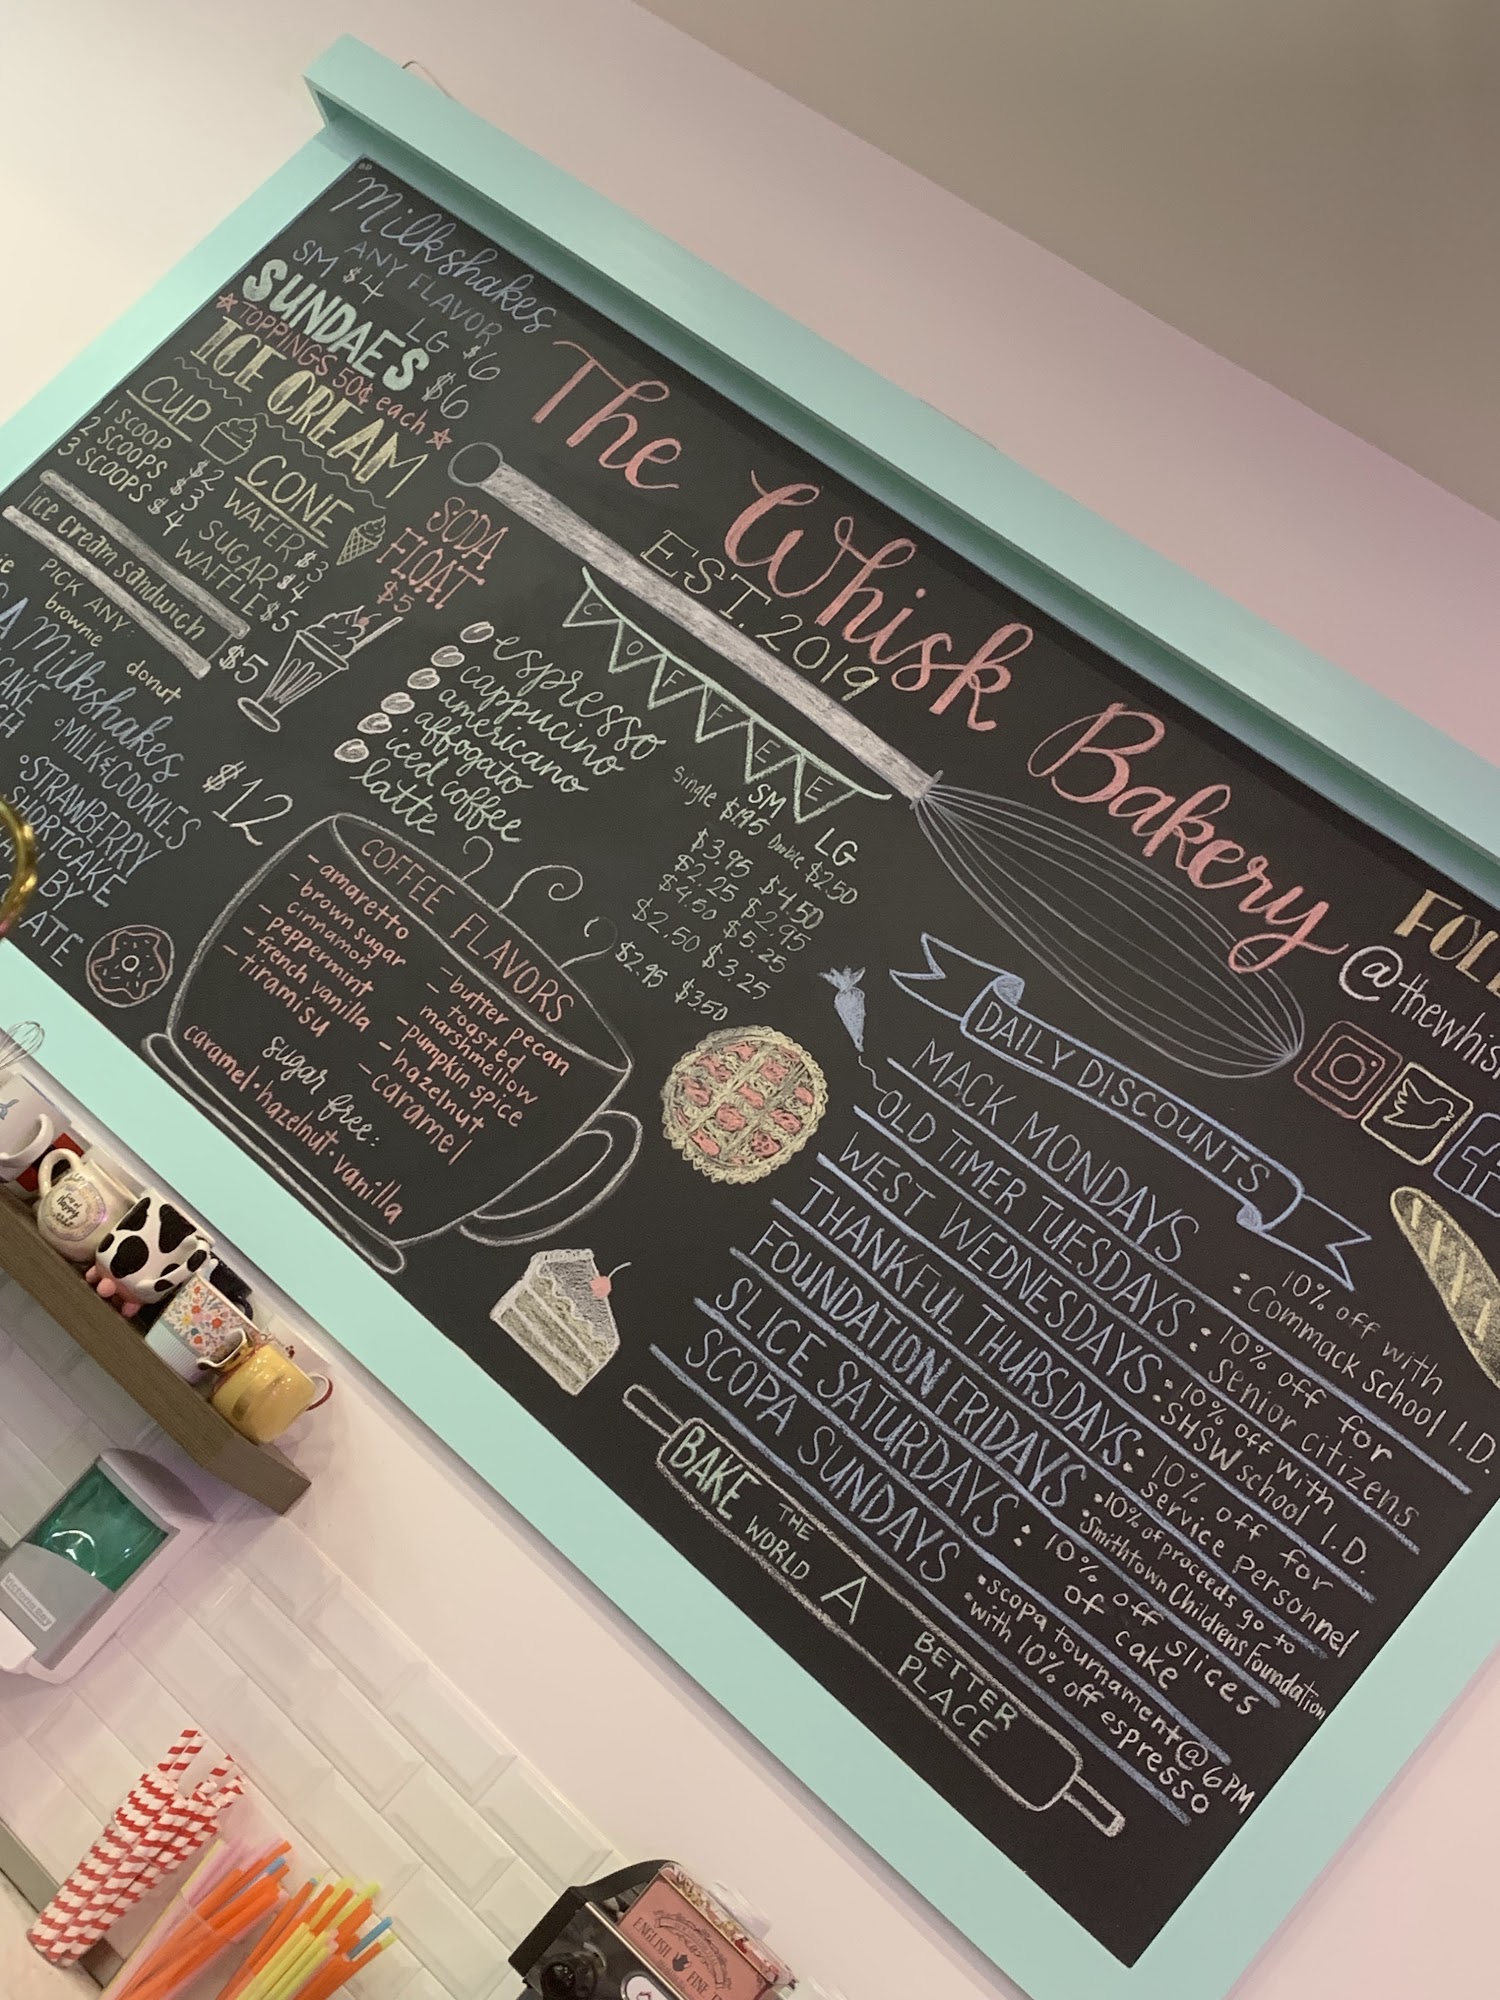 Milkshakes
ANY FLAVOR
SM $4 LG $6
SUNDAES $6
TOPPINGS 50¢ each
ICE CREAM
CUP
1 SCOOP $2
2 SCOOPS $3
3 SCOOPS $4
CONE
WAFER $3
SUGAR $4
WAFFLE $5
ice cream sandwich
PICK ANY:
brownie donut
$5
SODA
FLOAT
$5
A Milkshakes
$12
MILK & COOKIES
STRAWBERRY
SHORTCAKE
BY
The Whisk Bakery
EST. 2019
COFFEE
SM LG
espresso Single $1.95 Double $2.50
cappucino $3.95 $4.50
americano $2.25 $2.95
affogato $4.50 $5.25
iced coffee $2.50 $3.25
latte $2.95 $3.50
COFFEE FLAVORS
- amaretto
- brown sugar
cinnamon
- peppermint
- french vanilla
- tiramisu
- butter pecan
- toasted
marshmellow
- pumpkin spice
- hazelnut
- caramel
sugar free:
caramel • hazelnut • vanilla
@thewhis
DAILY DISCOUNTS
MACK MONDAYS : 10% off with
Commack School I.D.
OLD TIMER TUESDAYS : 10% off for
Senior Citizens
WEST WEDNESDAYS : 10% off with
SHSW school I.D.
THANKFUL THURSDAYS : 10% off for
service personnel
FOUNDATION FRIDAYS : 10% of proceeds go to
Smithtown Childrens Foundation
SLICE SATURDAYS : 10% off slices
of cake
SCOPA SUNDAYS : scopa tournament @ 6PM
with 10% off espresso
BAKE THE WORLD A BETTER PLACE
ENGLISH FINE